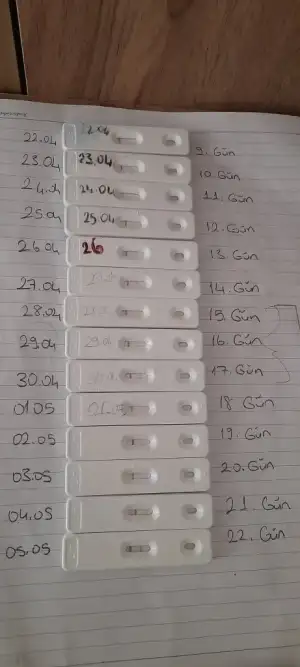 22.04 22.04 9. Gün
23.04 23.04 10. Gün
24.04 24.04 11. Gün
25.04 25.04 12. Gün
26.04 26 13. Gün
27.04 14. Gün
28.04 15. Gün
29.04 29.04 16. Gün
30.04 17. Gün
01.05 01.05 18 Gün
02.05 19. Gün
03.05 20. Gün
04.05 21. Gün
05.05 22. Gün